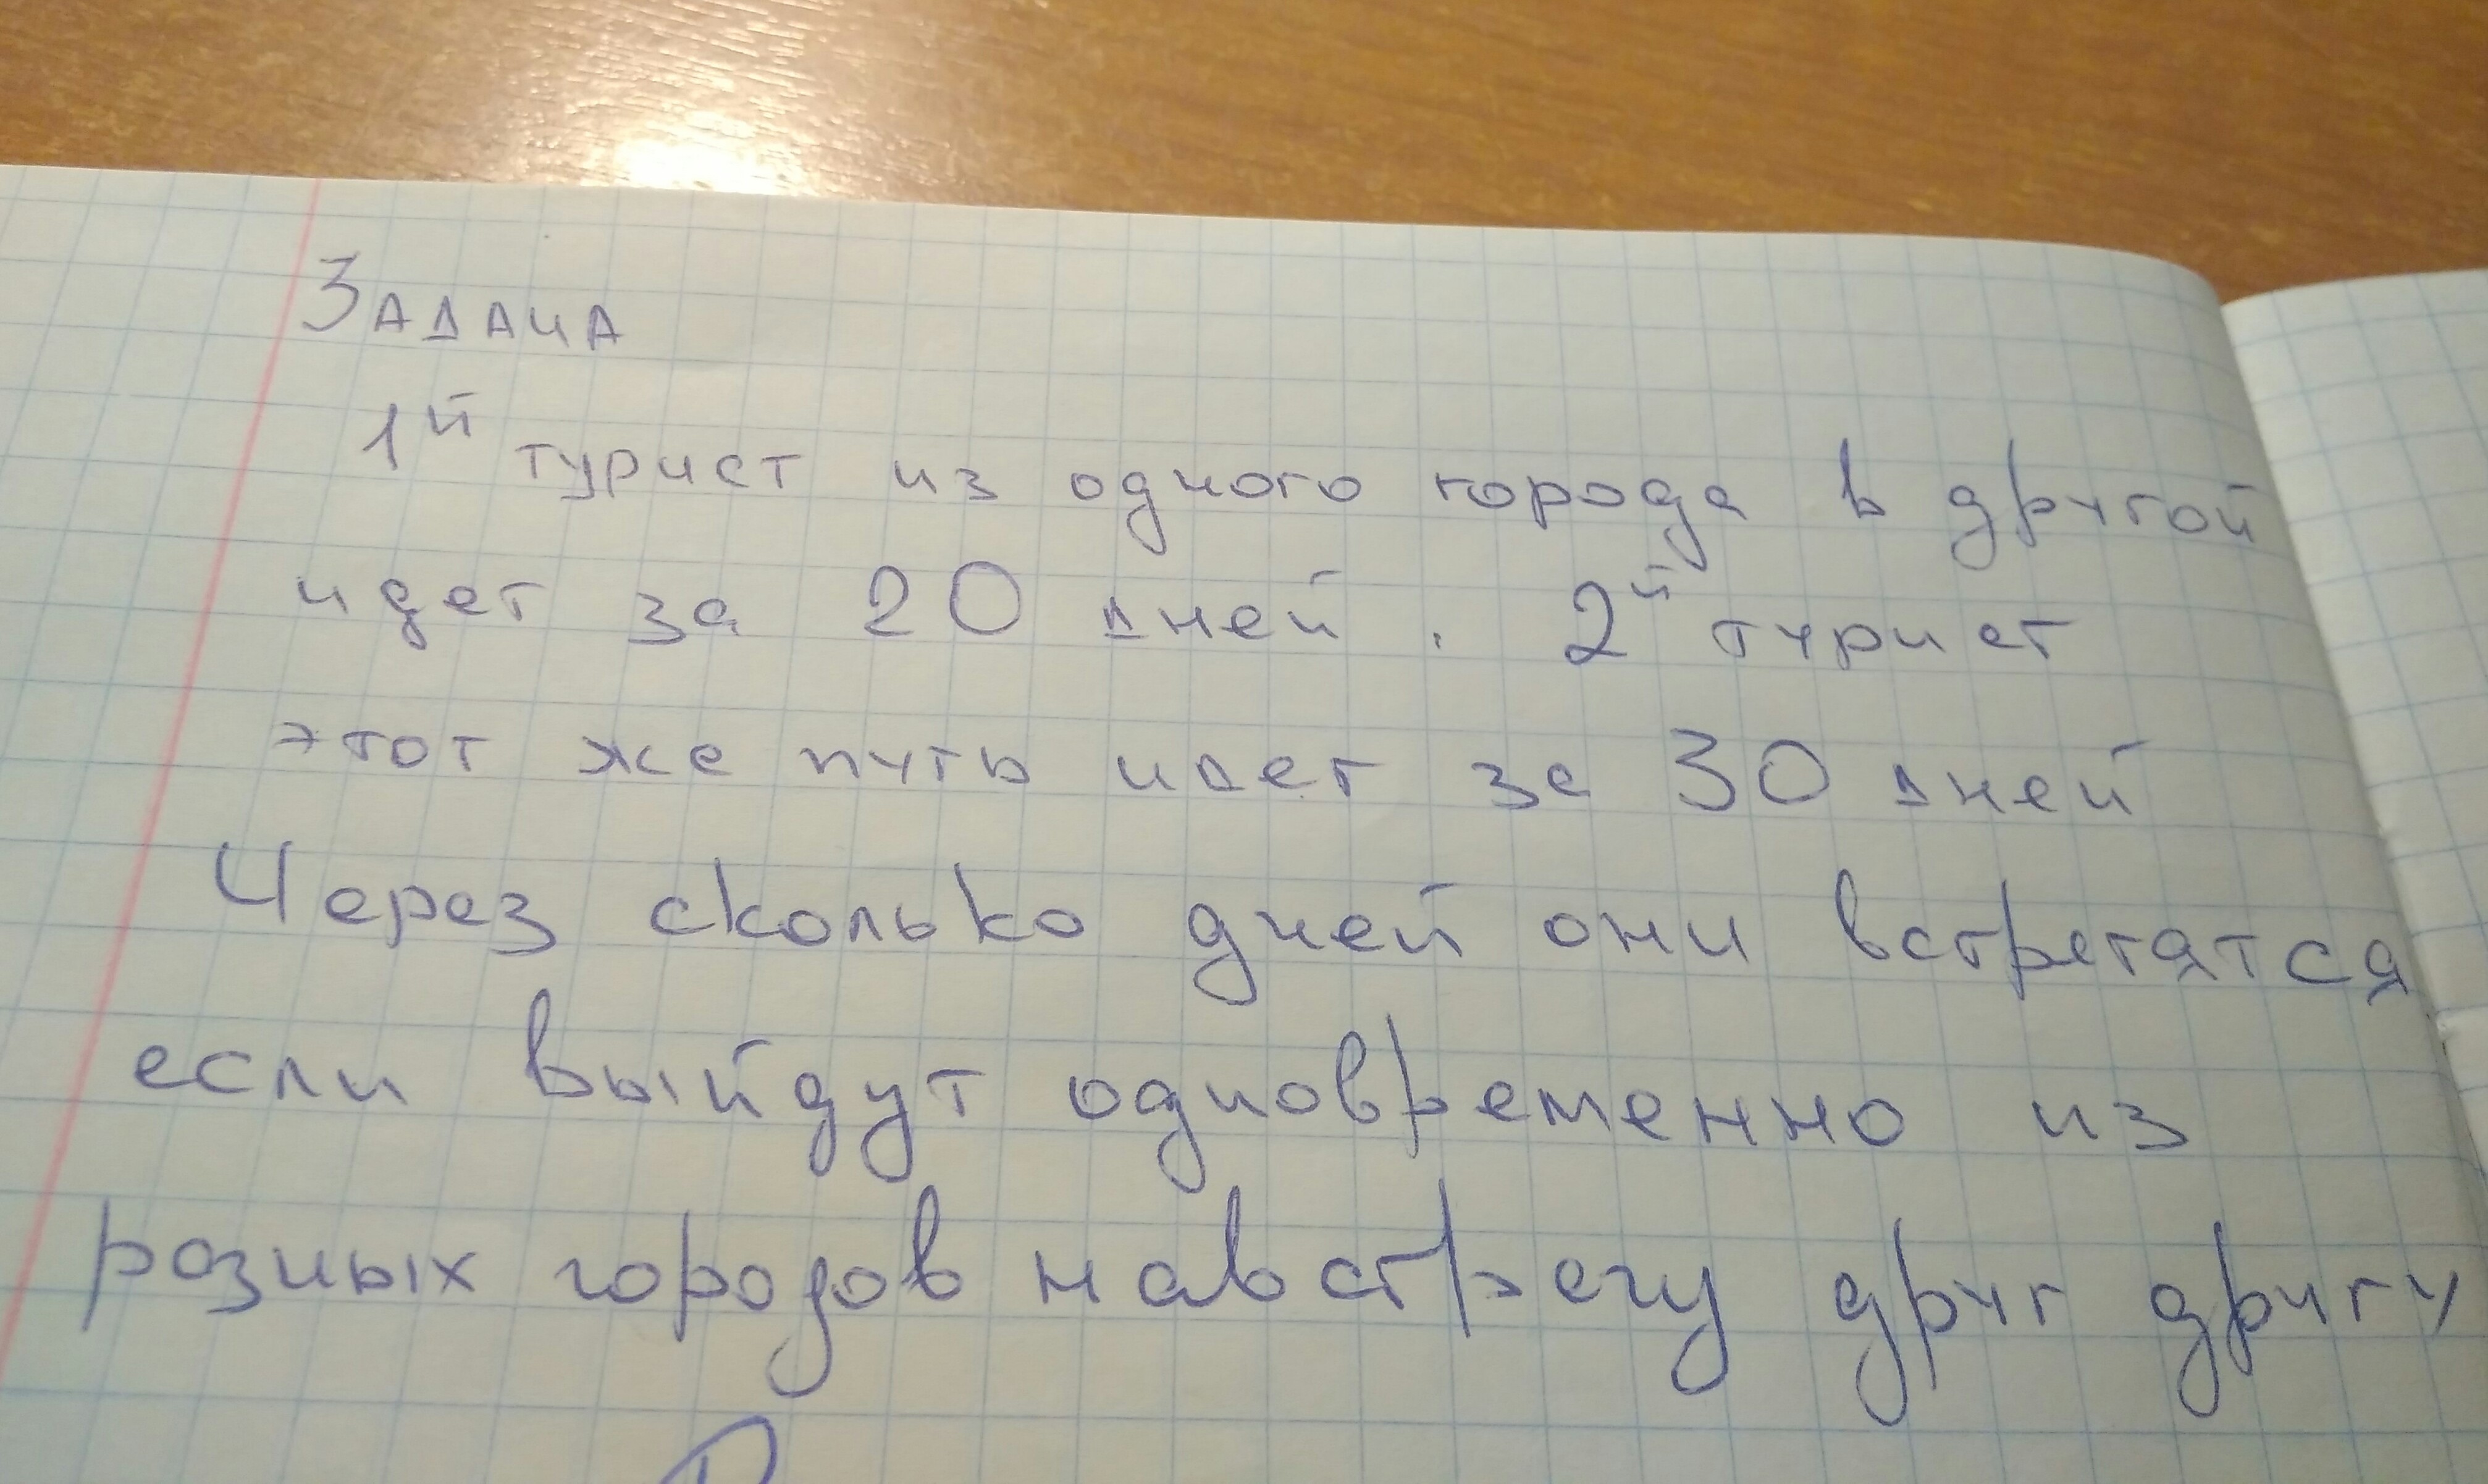 Задача
1й турист из одного города в другой
идет за 20 дней. 2й турист
этот же путь идет за 30 дней
Через сколько дней они встретятся
если выйдут одновременно из
розных городов навстречу друг другу